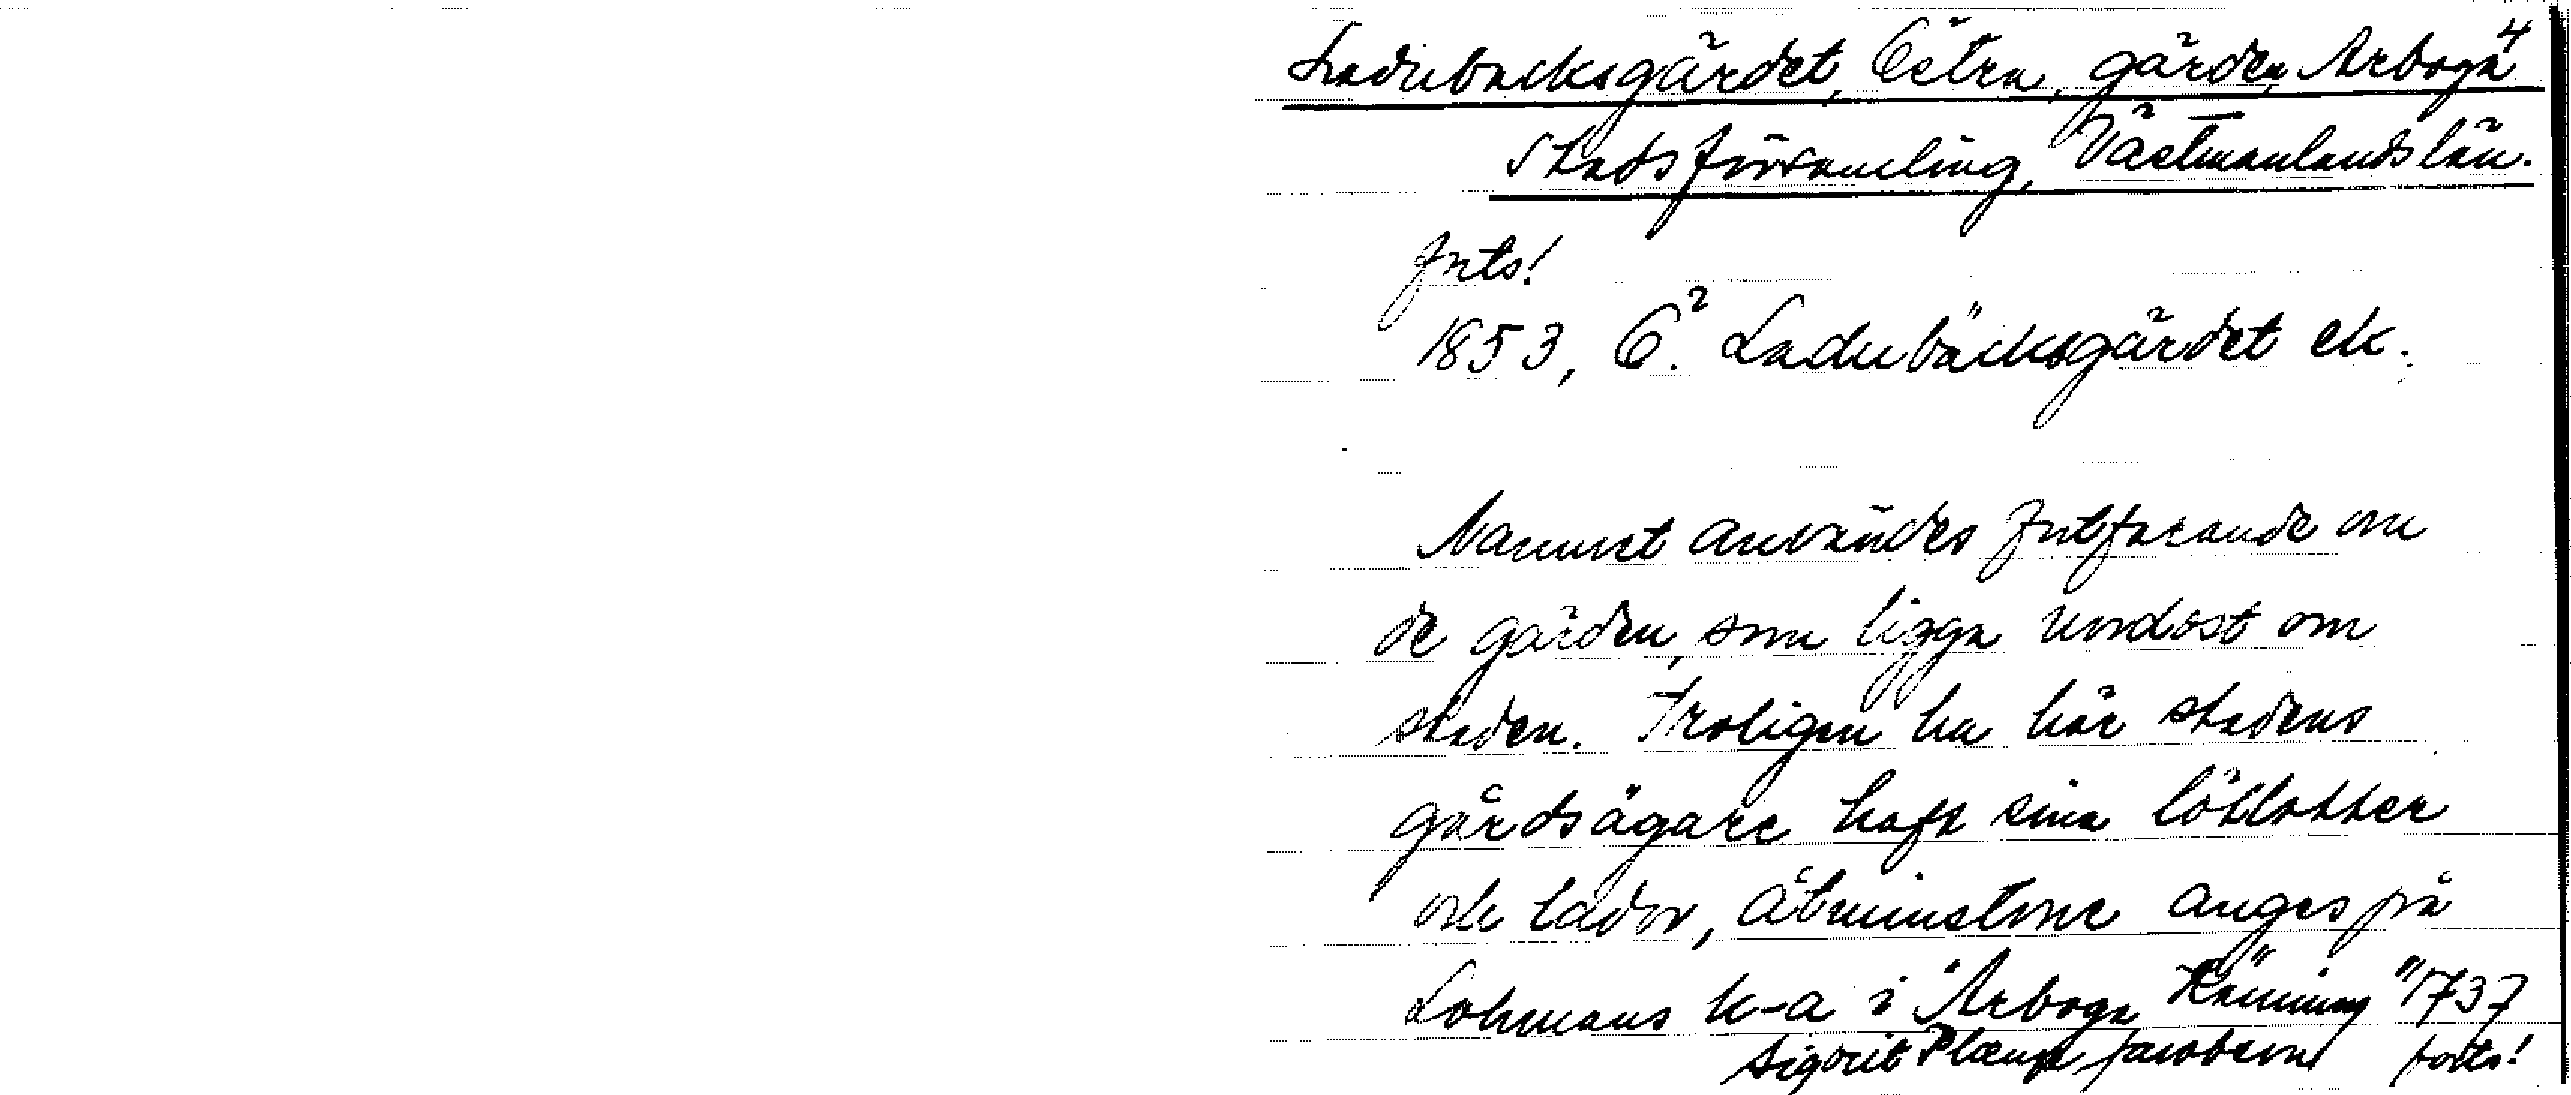 4
Ladubacksgärdet, Östra, gärden, Arboga
Stadsförsamling, Västmanlands län.
forts!
1853, Ö. Ladubäcksgärdet ek.
Namnet användes fortfarande om
de gärden, som ligga nordost om
staden. Troligen ha här stadens
gårdsägare haft sina
och lador, åtminstone anges på
Lohmans k-a i "Arboga Känning" 1737
Sigrit Plænge Jacobson forts!